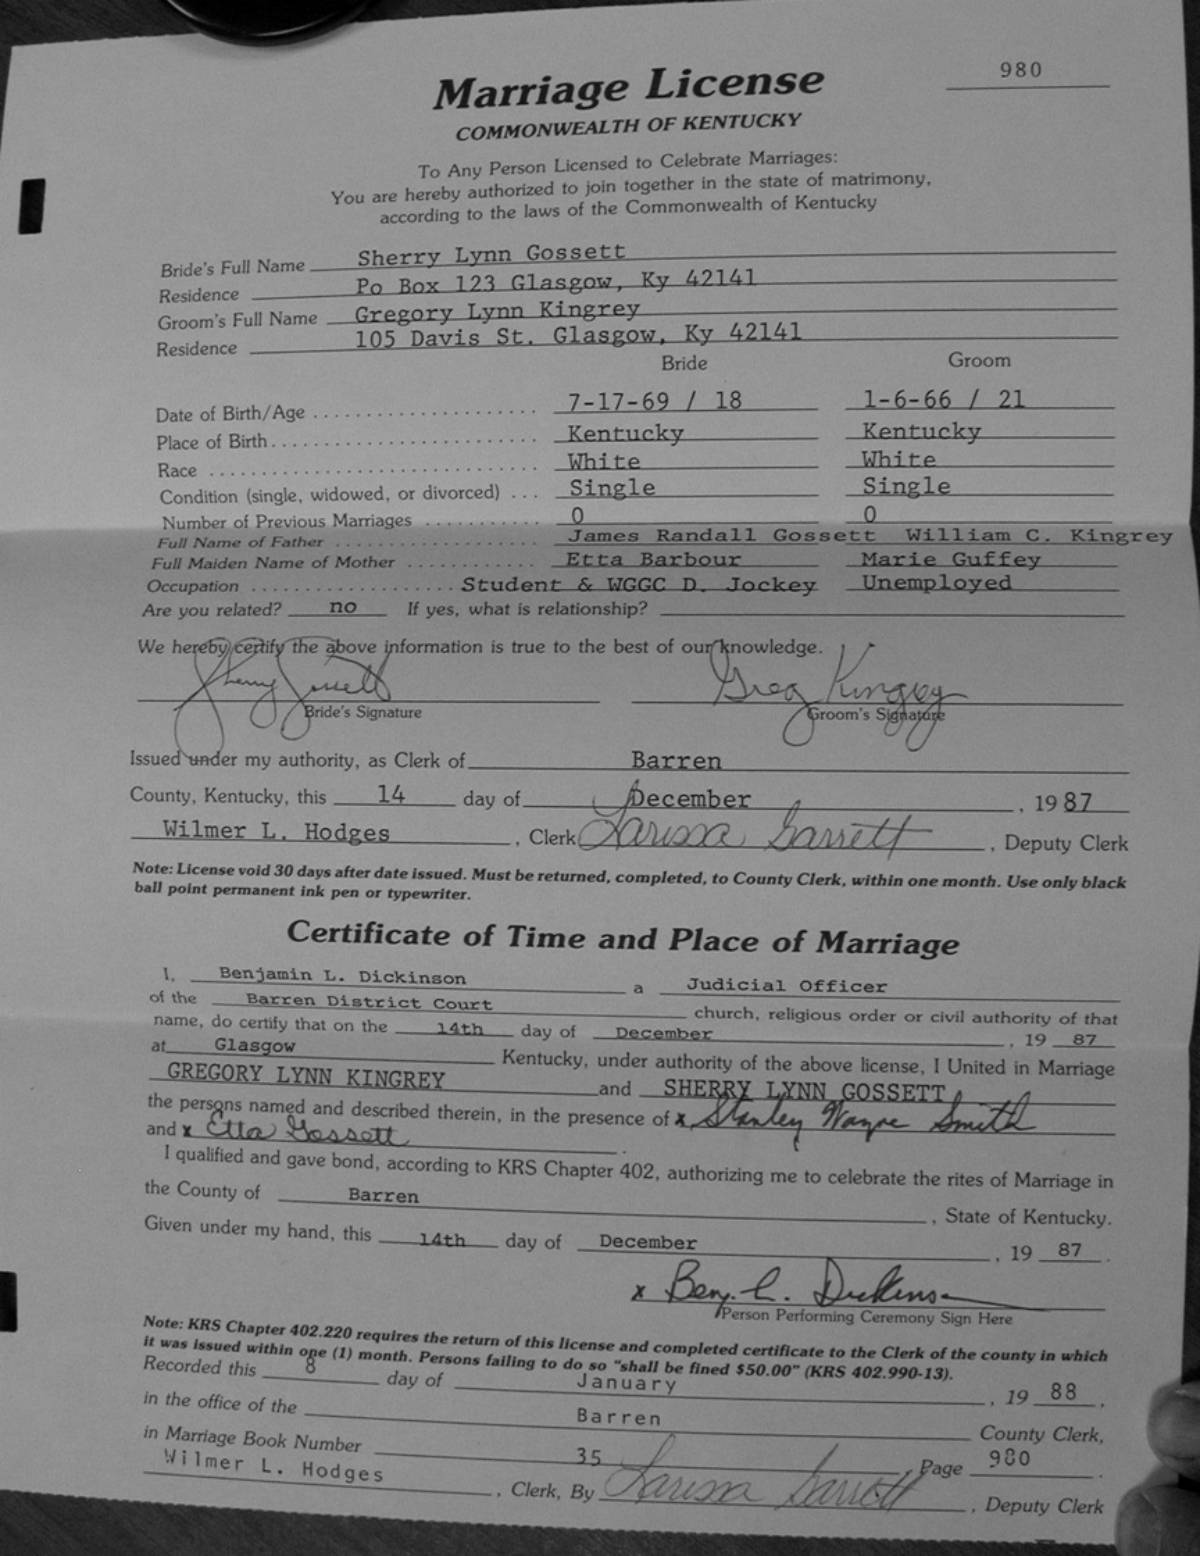 980
Marriage License
COMMONWEALTH OF KENTUCKY
To Any Person Licensed to Celebrate Marriages:
You are hereby authorized to join together in the state of matrimony,
according to the laws of the Commonwealth of Kentucky
Bride's Full Name Sherry Lynn Gossett
Residence Po Box 123 Glasgow, Ky 42141
Groom's Full Name Gregory Lynn Kingrey
Residence 105 Davis St. Glasgow, Ky 42141
Bride Groom
Date of Birth/Age 7-17-69 / 18 1-6-66 / 21
Place of Birth Kentucky Kentucky
Race White White
Condition (single, widowed, or divorced) Single Single
Number of Previous Marriages 0 0
Full Name of Father James Randall Gossett William C. Kingrey
Full Maiden Name of Mother Etta Barbour Marie Guffey
Occupation Student & WGGC D. Jockey Unemployed
Are you related? no If yes, what is relationship?
We hereby certify the above information is true to the best of our knowledge.
Sherry Gossett Greg Kingrey
Bride's Signature Groom's Signature
Issued under my authority, as Clerk of Barren
County, Kentucky, this 14 day of December, 1987
Wilmer L. Hodges, Clerk Larissa Garrett, Deputy Clerk
Note: License void 30 days after date issued. Must be returned, completed, to County Clerk, within one month. Use only black
ball point permanent ink pen or typewriter.
Certificate of Time and Place of Marriage
I, Benjamin L. Dickinson a Judicial Officer
of the Barren District Court church, religious order or civil authority of that
name, do certify that on the 14th day of December, 19 87
at Glasgow Kentucky, under authority of the above license, I United in Marriage
GREGORY LYNN KINGREY and SHERRY LYNN GOSSETT
the persons named and described therein, in the presence of x Stanley Wayne Smith
and x Etta Gossett.
I qualified and gave bond, according to KRS Chapter 402, authorizing me to celebrate the rites of Marriage in
the County of Barren, State of Kentucky.
Given under my hand, this 14th day of December, 19 87.
x Benj. L. Dickinson
Person Performing Ceremony Sign Here
Note: KRS Chapter 402.220 requires the return of this license and completed certificate to the Clerk of the county in which
it was issued within one (1) month. Persons failing to do so "shall be fined $50.00" (KRS 402.990-13).
Recorded this 8 day of January, 19 88.
in the office of the Barren County Clerk,
in Marriage Book Number 35, Page 980.
Wilmer L. Hodges, Clerk, By Larissa Garrett, Deputy Clerk